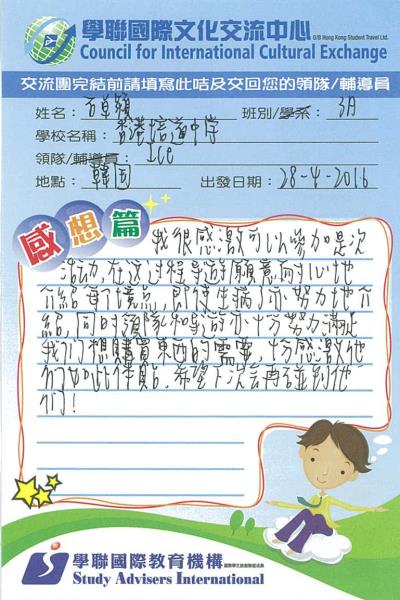 學聯國際文化交流中心
O/B Hong Kong Student Travel Ltd.
Council for International Cultural Exchange
交流團完結前請填寫此咭及交回您的領隊/輔導員
姓名： 卓穎 班別/學系： 3A
學校名稱： 香港培道中學
領隊/輔導員： Ice
地點： 韓國 出發日期： 28-4-2016
感想篇
我很感激可以參加是次
活動,在这过程导遊願意耐心地
介紹每個境点,即使生病了亦努力地介
紹,同时領隊和导遊亦十分努力滿足
我们想購買東西的需要,十分感激他
们如此体貼.希望下次会再碰到他
们!
學聯國際教育機構
Study Advisers International